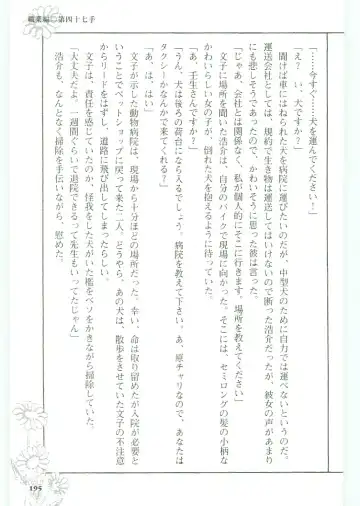 職業編□第四十七手
「……今すぐ……犬を運んでください！」
「え？　い、犬ですか？」
聞けば車にはねられた犬を病院に運びたいのだが、中型犬のために自力では運べないというのだ。
運送会社としては、規約で生き物は運送してはいけないので断った浩介だったが、彼女の声があまり
にも悲しそうであったので、かわいそうに思った彼は言った。
「じゃあ、会社とは関係なく、私が個人的にそこに行きます。場所を教えてください」
文子に場所を聞いた浩介は、自分のバイクで現場に向かった。そこには、セミロングの髪の小柄な
かわいらしい女の子が、倒れた犬を抱えるように待っていた。
「あ、壬生さんですか？」
「うん、犬は後ろの荷台になら入るでしょう。病院を教えて下さい。あ、原チャリなので、あなたは
タクシーかなんかで来てくれる？」
「あ、は、はい」
文子が示した動物病院は、現場から十分ほどの場所だった。幸い、命は取り留めたが入院が必要と
いうことでペットショップに戻って来た二人。どうやら、あの犬は、散歩をさせていた文子の不注意
からリードをはずし、道路に飛び出してしまったらしい。
文子は、責任を感じていたのか、怪我をした犬がいた檻をベソをかきながら掃除していた。
「大丈夫だよ。一週間ぐらいで退院できるって先生もいってたじゃん」
浩介も、なんとなく掃除を手伝いながら、慰めた。
195